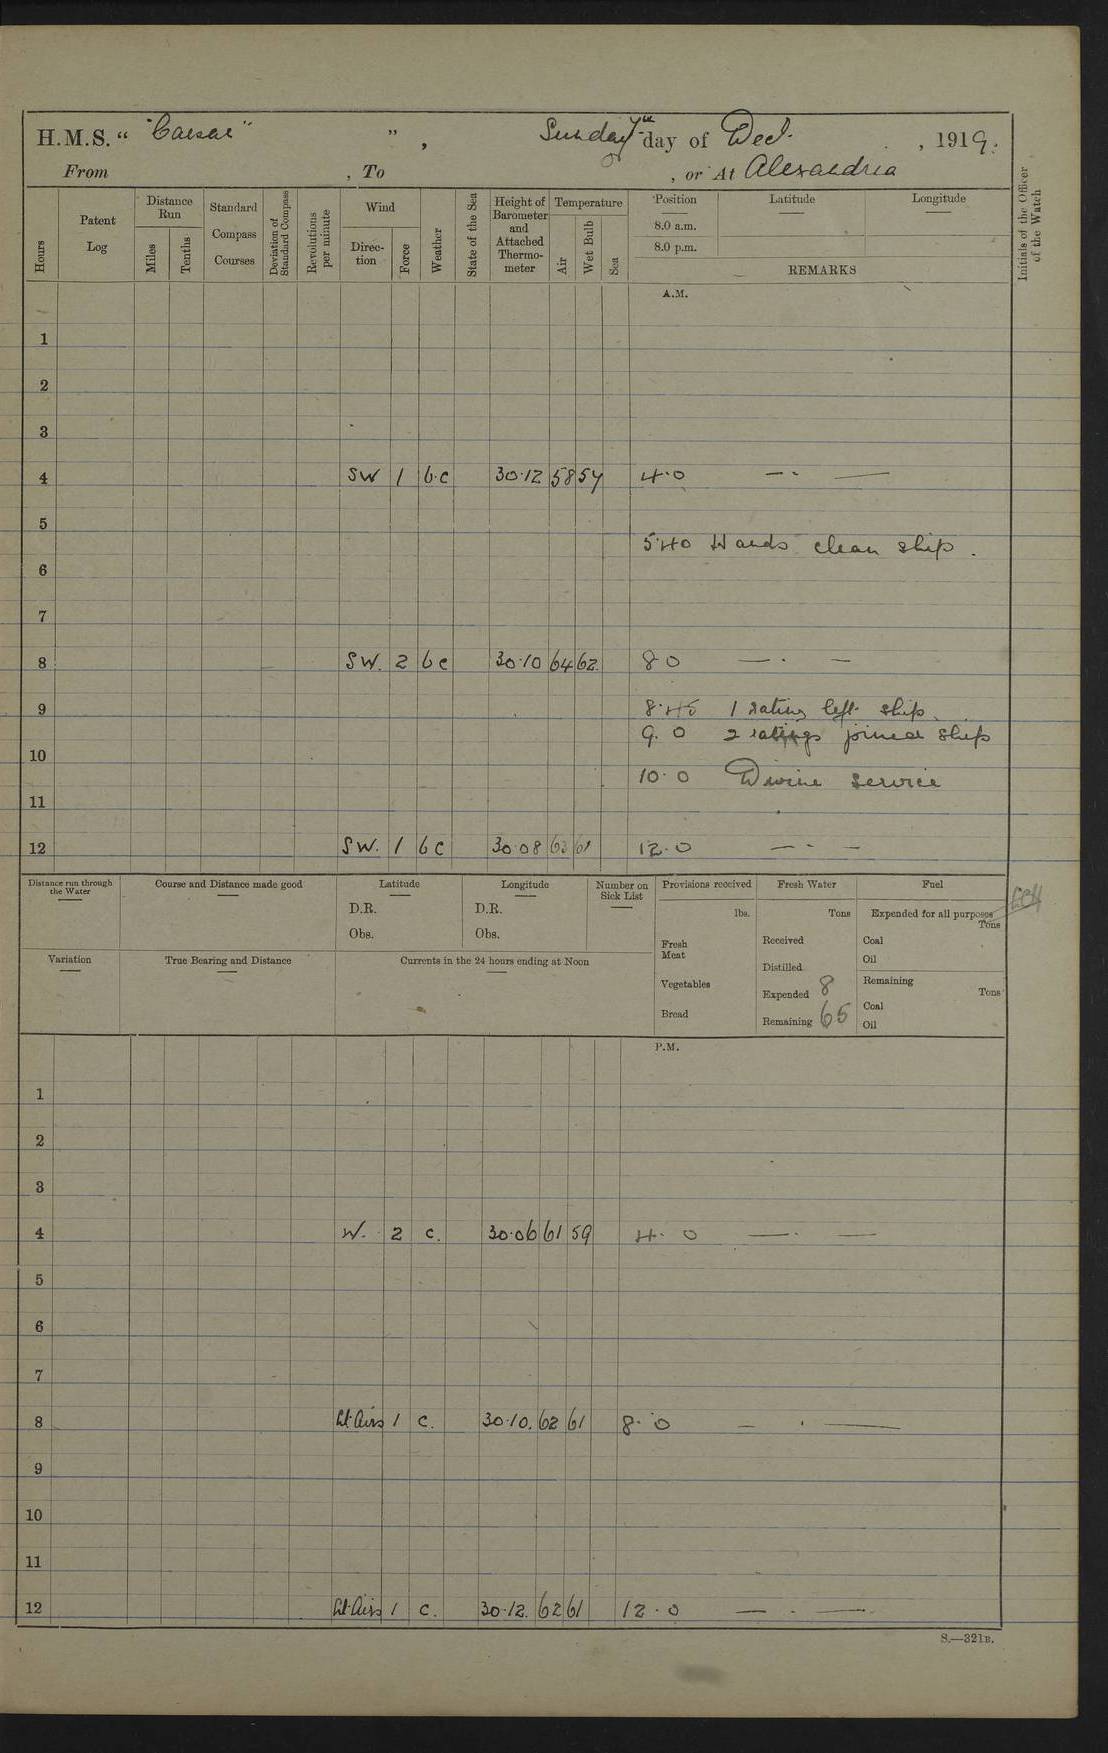 H.M.S. “ "Caesar" ” , Sunday 7th day of Dec. , 1919.
From , To , or At Alexandria
Hours
Patent Log
Distance Run
Miles
Tenths
Standard Compass Courses
Deviation of Standard Compass
Revolutions per minute
Wind
Direction
Force
Weather
State of the Sea
Height of Barometer and Attached Thermometer
Temperature
Air
Wet Bulb
Sea
Position Latitude Longitude
8.0 a.m.
8.0 p.m.
REMARKS
Initials of the Officer of the Watch
A.M.
1
2
3
4 SW 1 b.c 30.12 58 57 4.0 — . —
5
5.40 Hands clean ship.
6
7
8 SW. 2 bc 30.10 64 62. 8 0 — . —
9 8.45 1 rating left ship.
9. 0 2 ratings joined ship
10
10. 0 Divine service
11
12 SW. 1 bc 30.08 63 61 12.0 — . —
Distance run through the Water
Course and Distance made good
Latitude
D.R.
Obs.
Longitude
D.R.
Obs.
Number on Sick List
Provisions received
lbs.
Fresh Meat
Vegetables
Bread
Fresh Water
Tons
Received
Distilled
Expended 8
Remaining 65
Fuel
Expended for all purposes
Tons
Coal
Oil
Remaining
Tons
Coal
Oil
Variation
True Bearing and Distance
Currents in the 24 hours ending at Noon
P.M.
1
2
3
4 W. 2 c. 30.06 61 59 4. 0 — . —
5
6
7
8 Lt Airs 1 c. 30.10. 62 61 8. 0 — . —
9
10
11
12 Lt Airs 1 c. 30.12. 62 61 12.0 — . —
S.—321B.